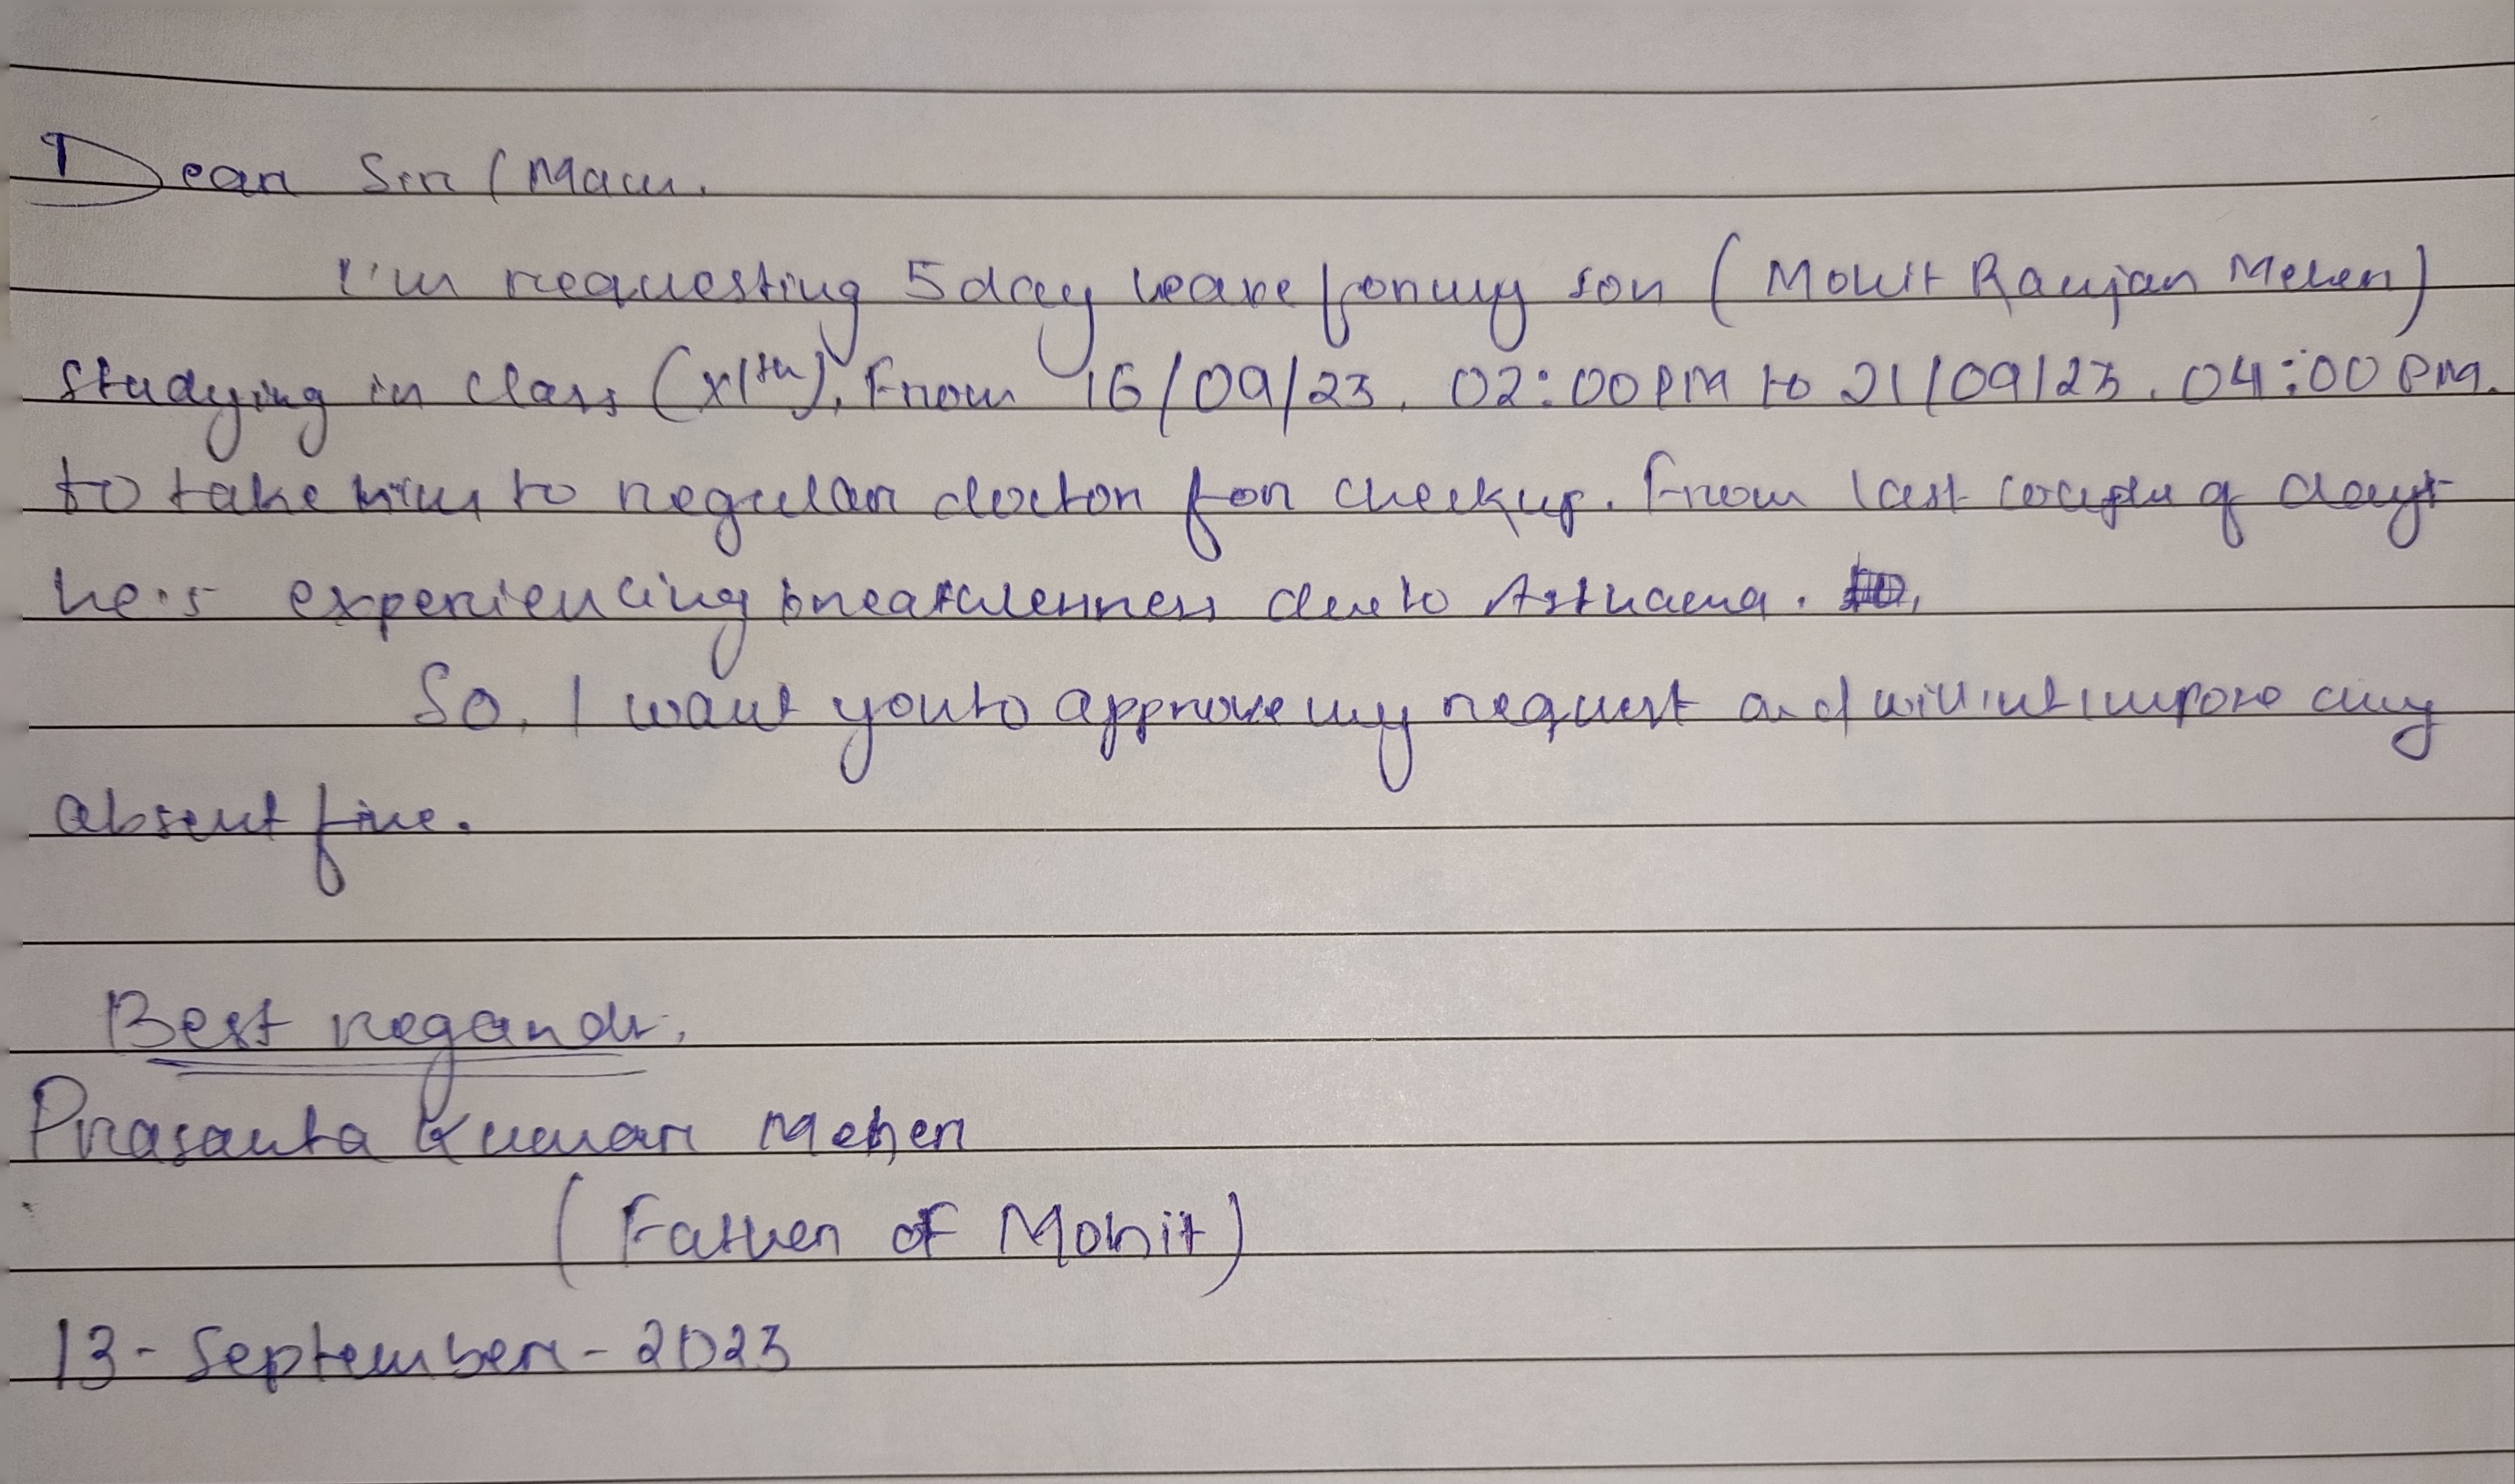 Dear Sir/Mam.
I'm requesting 5 day leave for my son (Mohit Ranjan Meher)
studying in class (XIth), From 16/09/23, 02:00 PM to 21/09/23, 04:00 PM.
to take him to regular doctor for checkup. From last couple of days
he's experiencing breathlessness due to Asthama.
So, I want you to approve my request and will not impose any
absent fine.
Best regards,
Prasanta Kumar Meher
(Father of Mohit)
13-September-2023